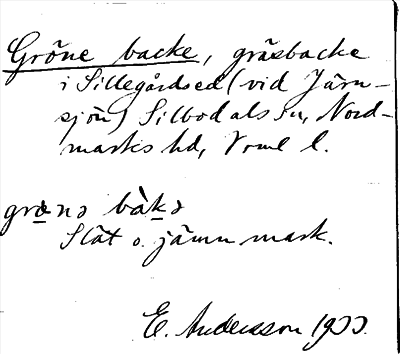 Gröne backe, gräsbacke
i Sillegårdsed (vid Järn-
sjön) Silbodals sn, Nord-
marks hd, Vrml l.
grø̀nə bàkə
Slät o. jämn mark.
E. Andersson 1933.